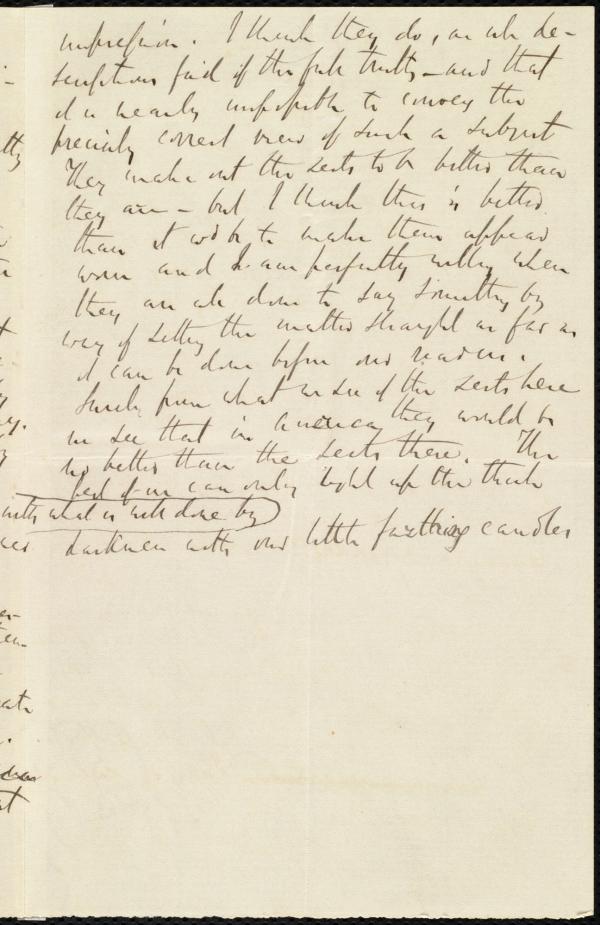 impression. I think they do, as all de-
scriptions fail of the full truth – and that
it is nearly impossible to convey the
precisely correct view of such a subject
They make out the sects to be better than
they are – but I think this is better
than it wd be to make them appear
worse and I am perfectly willing when
they are all done to say something by
way of setting the matter straight as far as
it can be done before our readers.
Surely from what we see of the sects here
we see that in America they would be
no better than the sects there. The
best of us can only light up the thick
with what is well done by
darkness with our little farthing candles